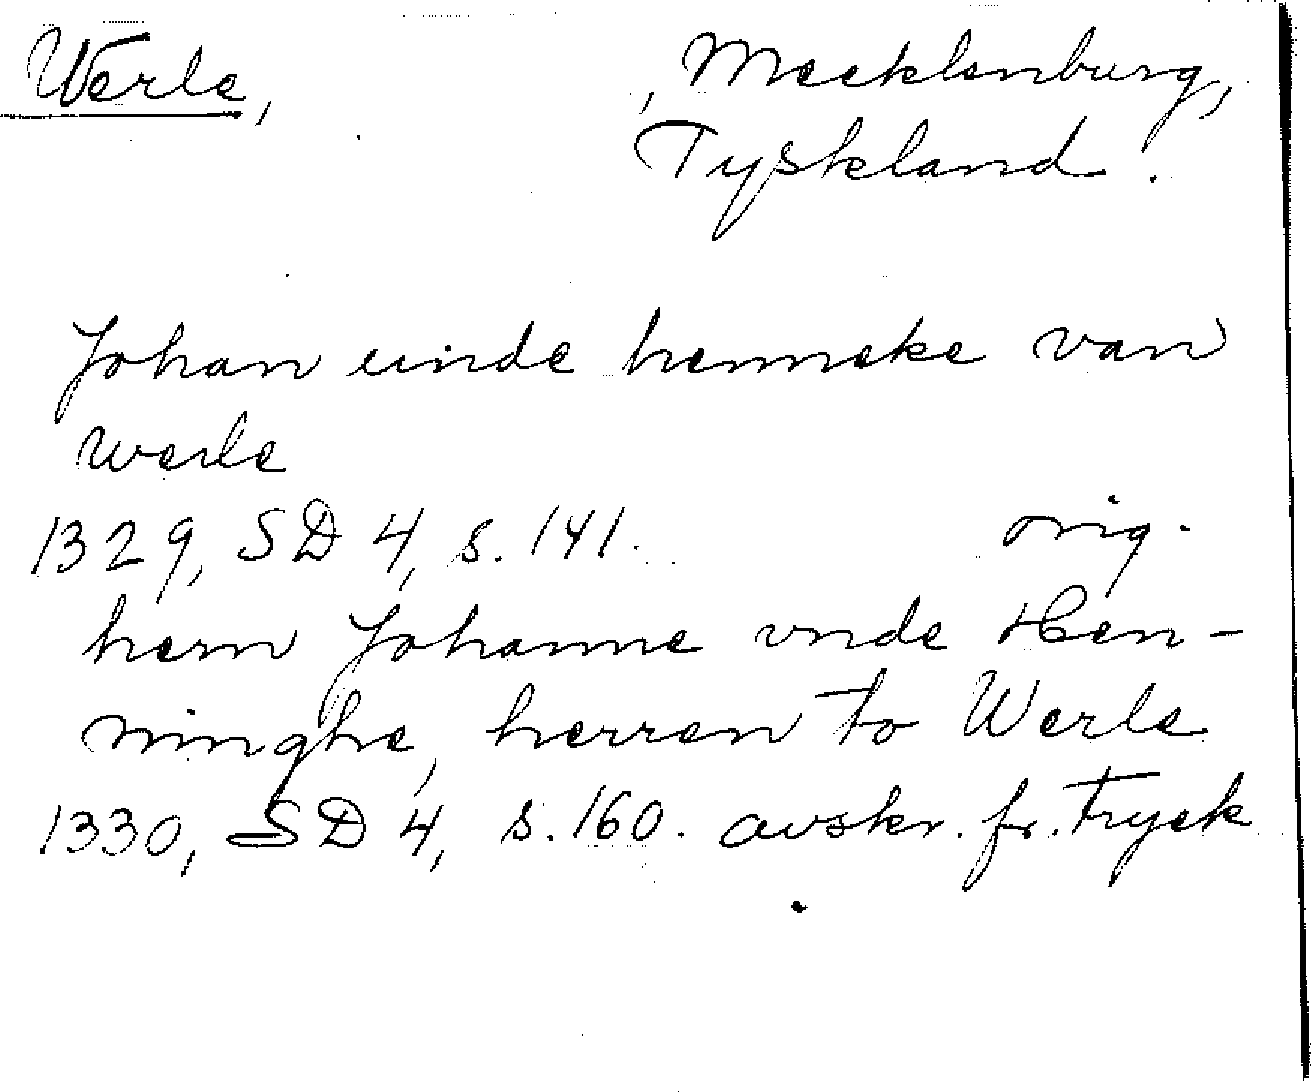 Werle, , Mecklenburg,
Tyskland.
Johan unde henneke van
werle
1329, SD 4, s. 141. orig.
hern Johanne vnde Hen-
ninghe, herren to Werle
1330, SD 4, s. 160. avskr. fr. tryck